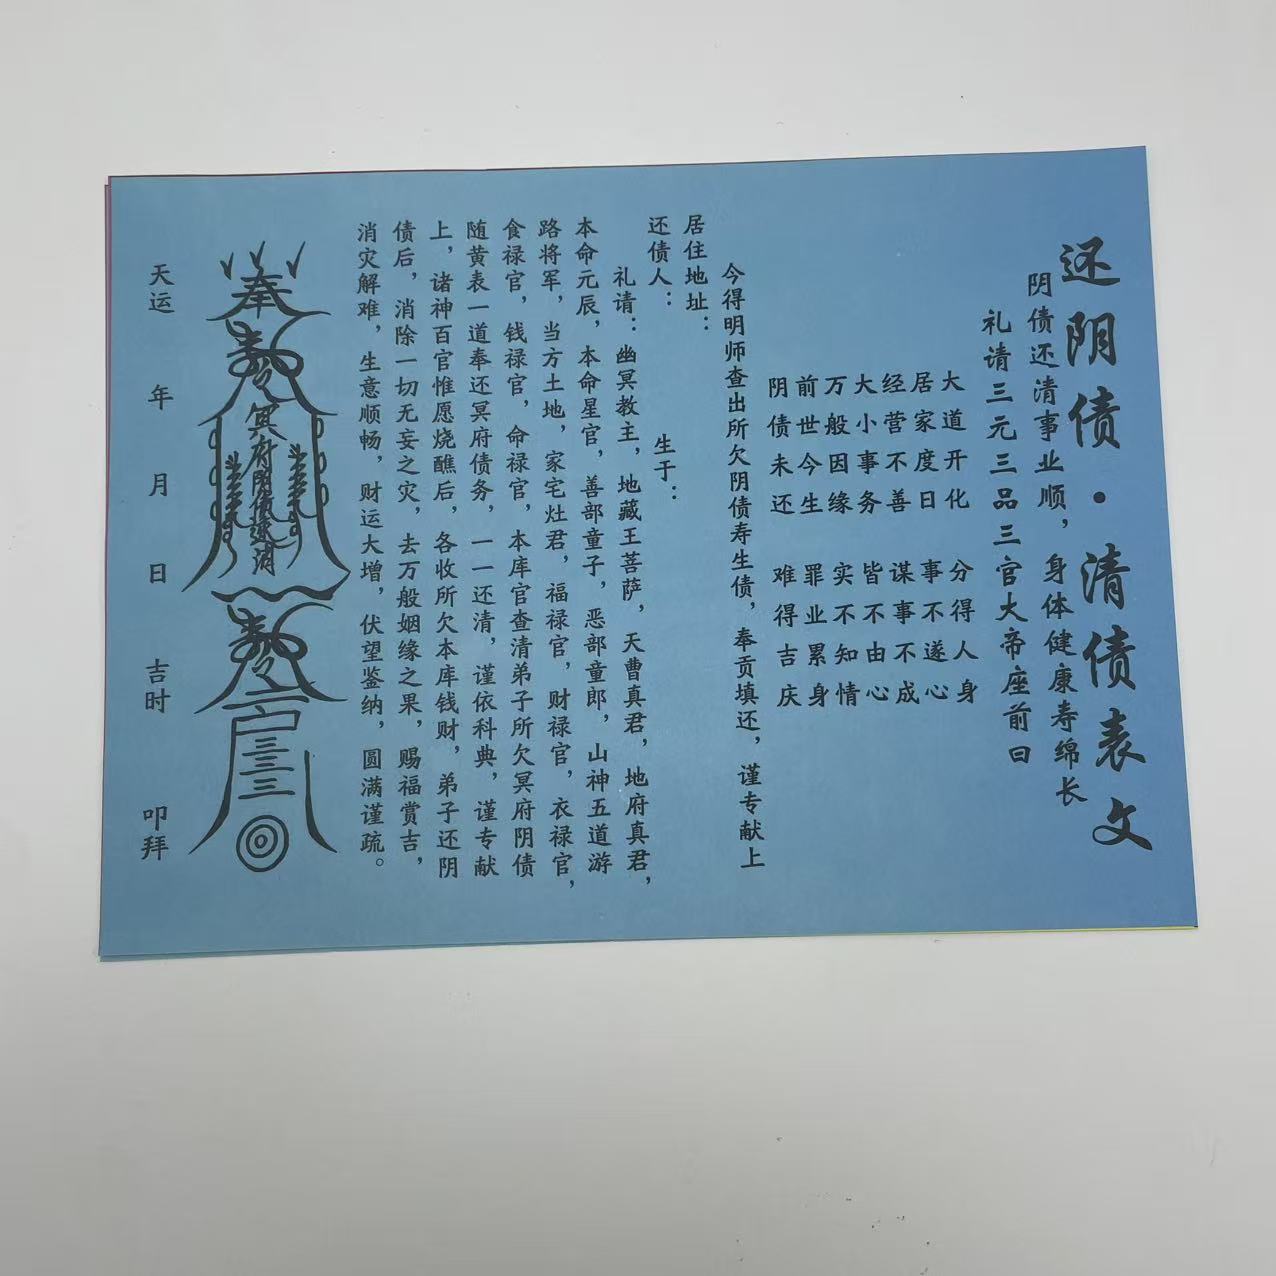 还阴债·清债表文
阴债还清事业顺，身体健康寿绵长
礼请三元三品三官大帝座前曰
大道开化 分得人身
居家度日 事不遂心
经营不善 谋事不成
大小事务 皆不由心
万般因缘 实不知情
前世今生 罪业累身
阴债未还 难得吉庆
今得明师查出所欠阴债寿生债，奉贡填还，谨专献上
居住地址：
还债人： 生于：
礼请：幽冥教主，地藏王菩萨，天曹真君，地府真君，
本命元辰，本命星官，善部童子，恶部童郎，山神五道游
路将军，当方土地，家宅灶君，福禄官，财禄官，衣禄官，
食禄官，钱禄官，命禄官，本库官查清弟子所欠冥府阴债
随黄表一道奉还冥府债务，一一还清，谨依科典，谨专献
上，诸神百官惟愿烧醮后，各收所欠本库钱财，弟子还阴
债后，消除一切无妄之灾，去万般姻缘之果，赐福赏吉，
消灾解难，生意顺畅，财运大增，伏望鉴纳，圆满谨疏。
奉
冥府阴债还消
天运 年 月 日 吉时 叩拜